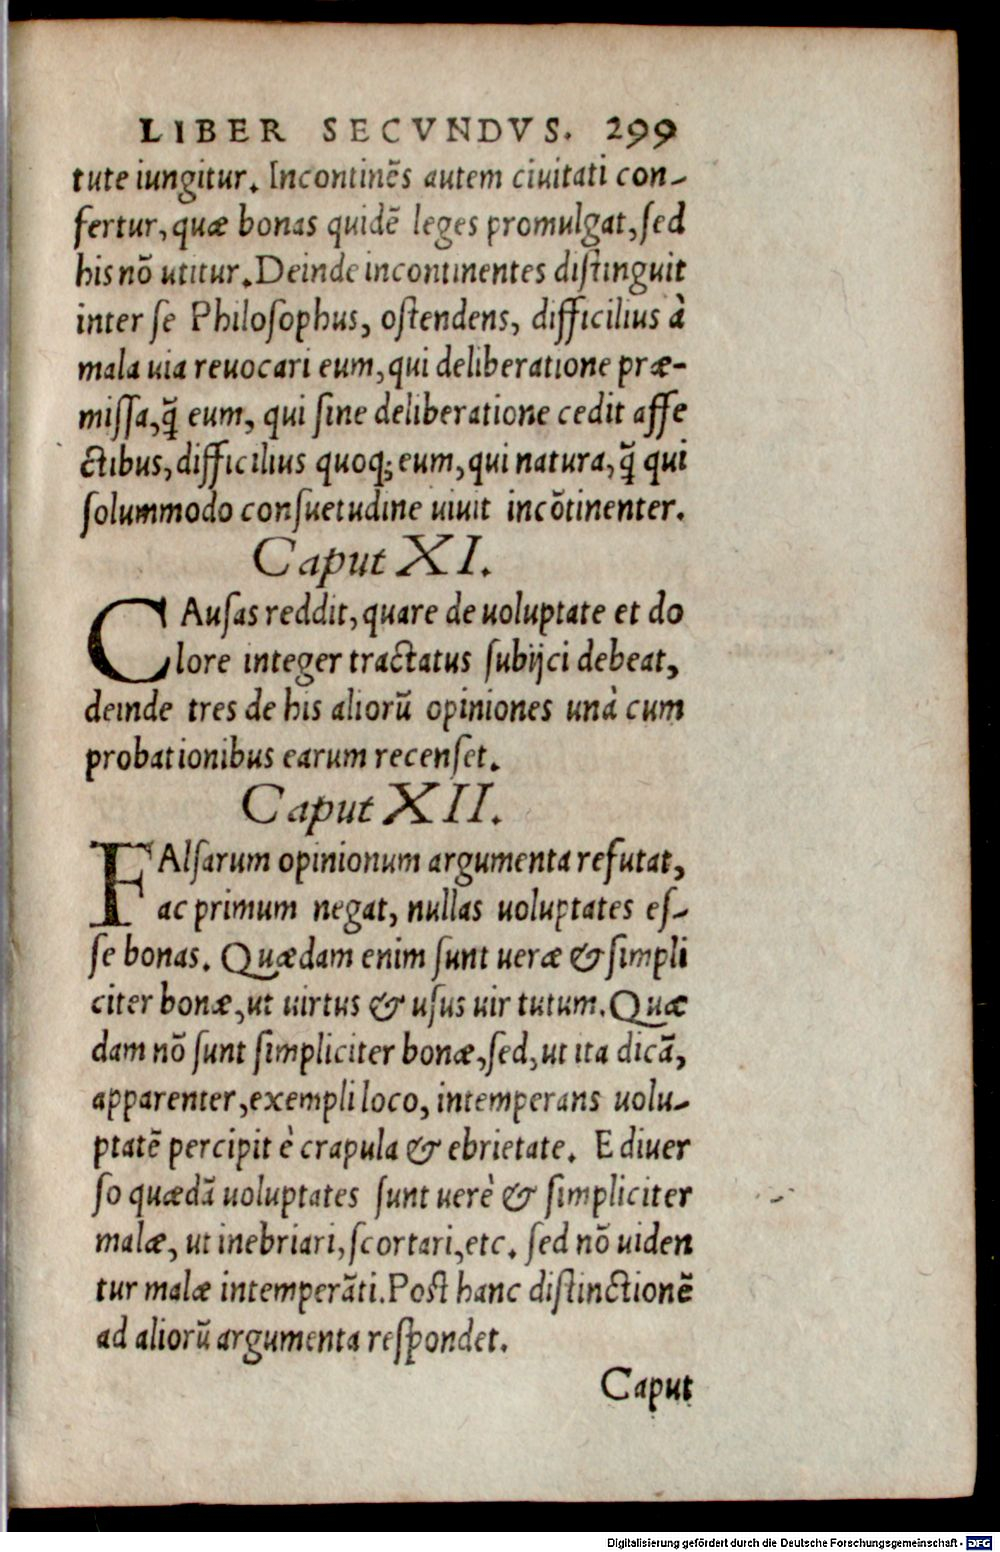 LIBER SECVNDVS. 299
tute iungitur. Incontinẽs autem ciuitati con-
fertur, quæ bonas quidẽ leges promulgat, ſed
his nõ utitur. Deinde incontinentes diſtinguit
inter ſe Philoſophus, oſtendens, difficilius à
mala uia reuocari eum, qui deliberatione præ-
miſſa, q̃ eum, qui ſine deliberatione cedit affe
ctibus, difficilius quoq; eum, qui natura, q̃ qui
ſolummodo conſuetudine uiuit incõtinenter.
Caput XI.
CAuſas reddit, quare de uoluptate et do
lore integer tractatus ſubijci debeat,
deinde tres de his aliorũ opiniones unà cum
probationibus earum recenſet.
Caput XII.
FAlſarum opinionum argumenta refutat,
ac primum negat, nullas uoluptates eſ-
ſe bonas. Quædam enim ſunt ueræ & ſimpli
citer bonæ, ut uirtus & uſus uirtutum. Quæ
dam nõ ſunt ſimpliciter bonæ, ſed, ut ita dicã,
apparenter, exempli loco, intemperans uolu-
ptatẽ percipit è crapula & ebrietate. E diuer
ſo quædã uoluptates ſunt uerè & ſimpliciter
malæ, ut inebriari, ſcortari, etc. ſed nõ uiden
tur malæ intemperãti. Poſt hanc diſtinctionẽ
ad aliorũ argumenta reſpondet.
Caput
Digitalisierung gefördert durch die Deutsche Forschungsgemeinschaft - DFG